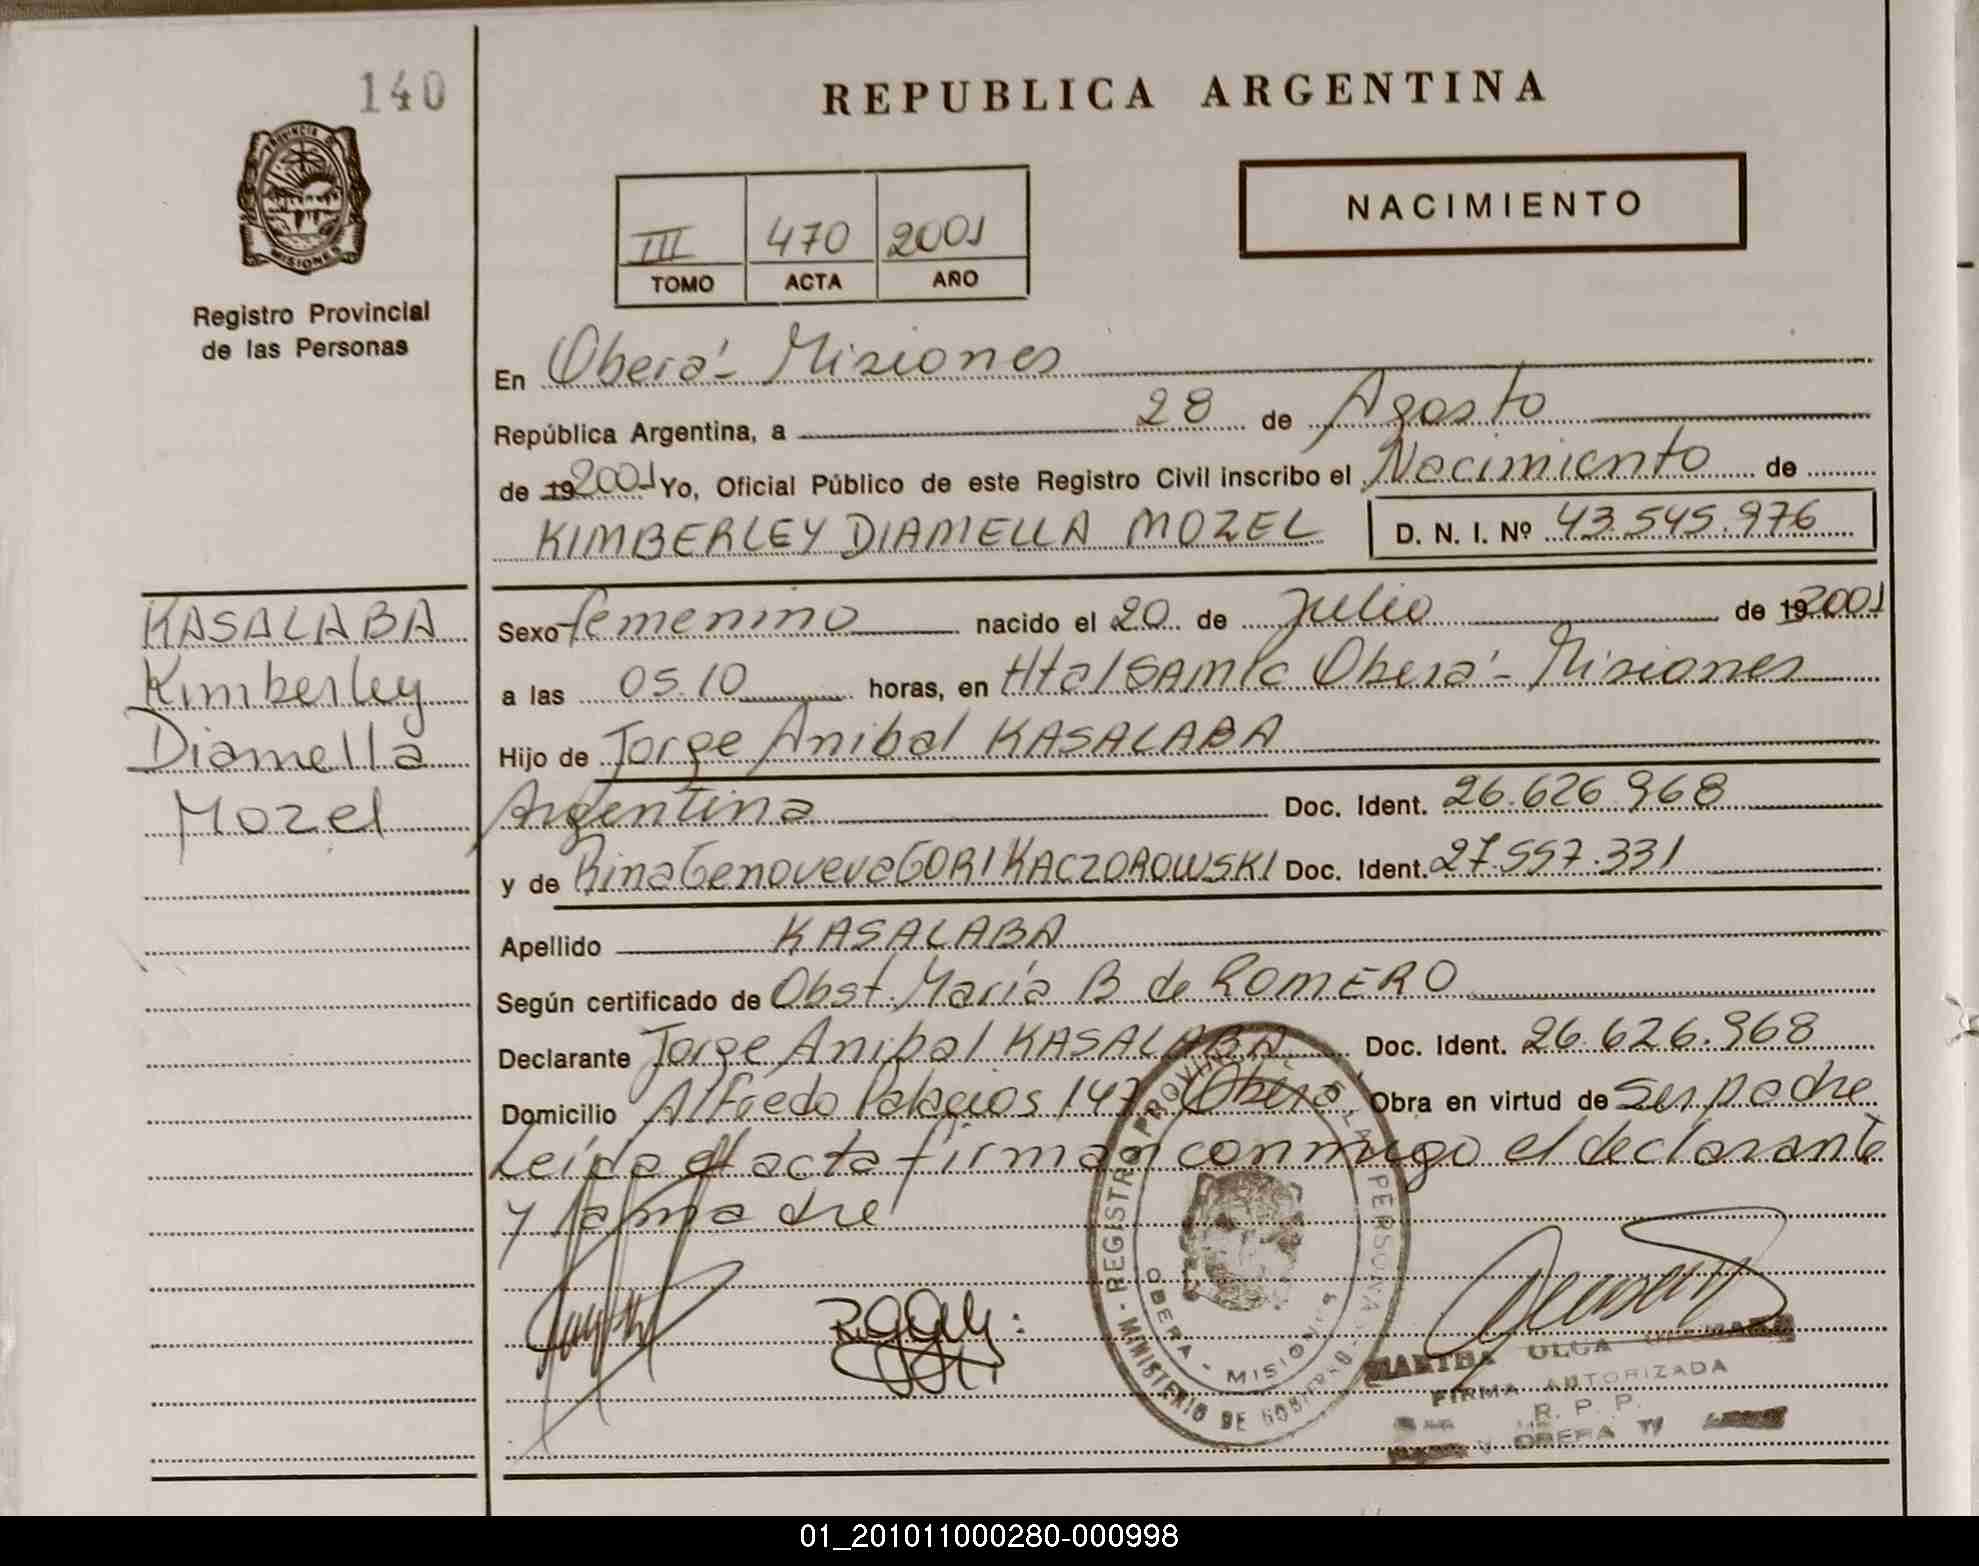 140
REPUBLICA ARGENTINA
PROVINCIA DE
MISIONES
Registro Provincial
de las Personas
NACIMIENTO
III 470 2001
TOMO ACTA AÑO
En Oberá - Misiones
República Argentina, a 28 de Agosto
de 19 2001 Yo, Oficial Público de este Registro Civil inscribo el Nacimiento de
KIMBERLEY DIAMELLA MOZEL D. N. I. Nº 43.545.976
KASALABA
Kimberley
Diamella
Mozel
Sexo femenino nacido el 20 de Julio de 19 2001
a las 05.10 horas, en Htal SAMIC Oberá - Misiones
Hijo de Jorge Anibal KASALABA
Argentina Doc. Ident. 26.626.968
y de Rina Genoveva GORI KACZOROWSKI Doc. Ident. 27.557.331
Apellido KASALABA
Según certificado de Obst. María B de ROMERO
Declarante Jorge Anibal KASALABA Doc. Ident. 26.626.968
Domicilio Alfredo Palacios 147 Oberá Obra en virtud de ser padre
Leída el acta firman conmigo el declarante
y la madre
REGISTRO PROVINCIAL DE LAS PERSONAS
OBERA - MISIONES
MINISTERIO DE GOBIERNO
MARTHA OLGA
FIRMA AUTORIZADA
R. P. P.
OBERA
01_201011000280-000998